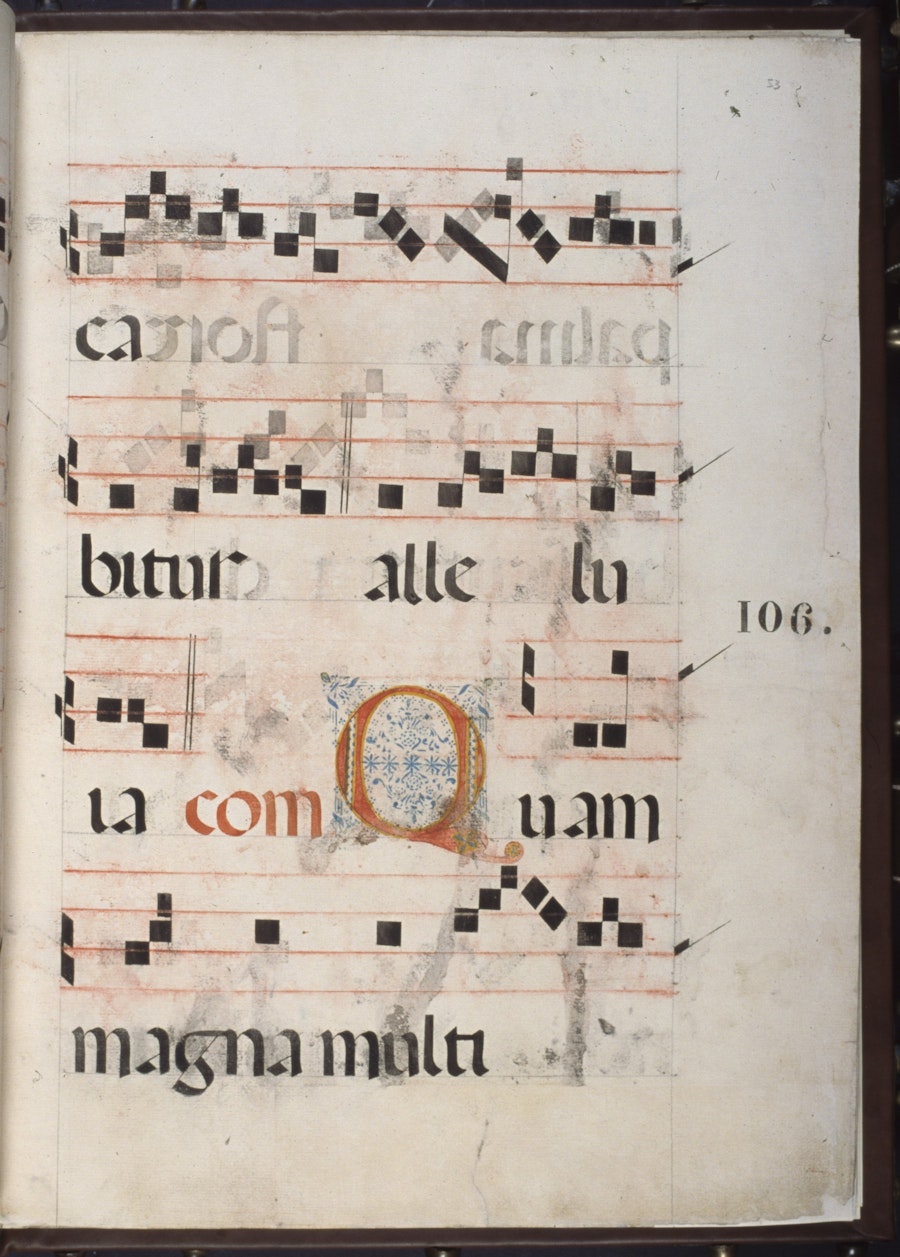 33
ca
palma florc
bitur alle lu
106.
ia com Quam
magna multi